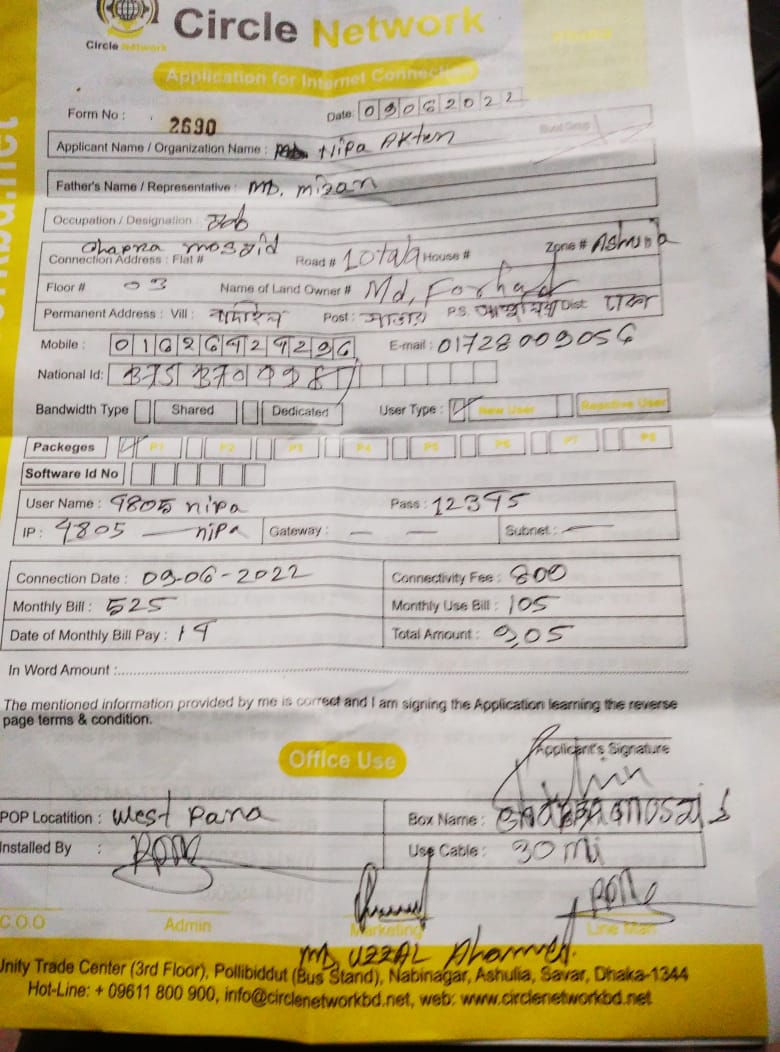 Circle Network
Circle Network
Application for Internet Connection
Form No : 2690 Date: 09062022
Applicant Name / Organization Name : Nipa Akter Blood Group
Father's Name / Representative : MD. mizan
Occupation / Designation :
Chapra moszid
Connection Address : Flat # Road # 10tala House # Zone # Ashulia
Floor # 03 Name of Land Owner # Md, Forhad
Permanent Address : Vill : Post : সাভার P.S. আশুলিয়া Dist: ঢাকা
Mobile : 01626429296 E-mail : 01728009056
National Id:
Bandwidth Type Shared Dedicated User Type : New User Reactive User
Packeges P1 P2 P3 P4 P5 P6 P7 P8
Software Id No
User Name : 9805 nipa Pass : 12345
IP : 9805 — nipa Gateway : — — Subnet : —
Connection Date : 09-06-2022 Connectivity Fee : 800
Monthly Bill : 525 Monthly Use Bill : 105
Date of Monthly Bill Pay : 19 Total Amount : 905
In Word Amount :
The mentioned information provided by me is correct and I am signing the Application learning the reverse
page terms & condition.
Applicant's Signature
Office Use
POP Locatition : West Para Box Name : Chapra moszid
Installed By : Use Cable : 30 mi
C.O.O Admin Marketing Line Man
MD, UZZAL Ahammed.
Unity Trade Center (3rd Floor), Pollibiddut (Bus Stand), Nabinagar, Ashulia, Savar, Dhaka-1344
Hot-Line: + 09611 800 900, info@circlenetworkbd.net, web: www.circlenetworkbd.net